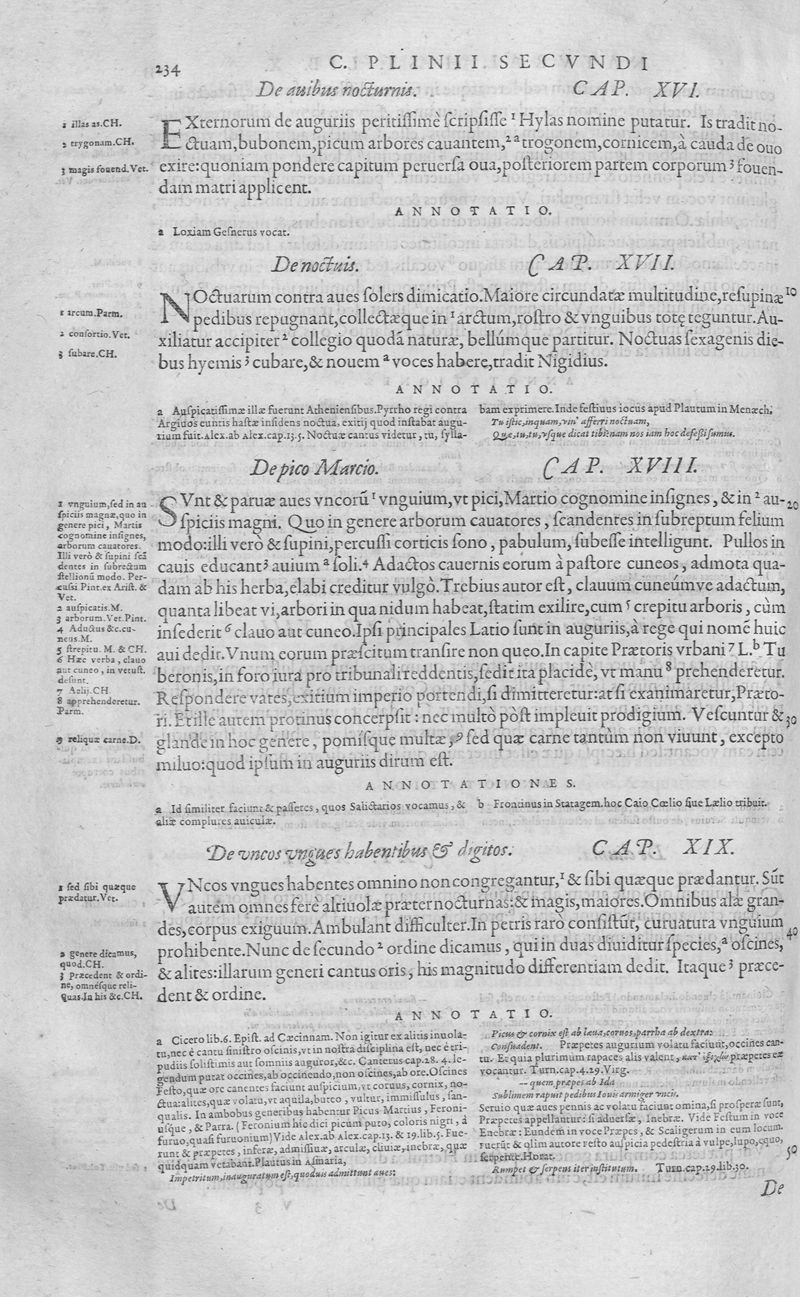 234
C. PLINII SECVNDI
De auibus nocturnis. CAP. XVI.
1 illas as.CH.
2 trygonam.CH.
3 magis fouend.Vet.
EXternorum de auguriis peritissimè scripsisse ¹ Hylas nomine putatur. Is tradit no-
ctuam,bubonem,picum arbores cauantem,² ª trogonem,cornicem,à cauda de ouo
exire:quoniam pondere capitum peruersa oua,posteriorem partem corporum ³ fouen-
dam matri applicent.
ANNOTATIO.
a Loxiam Gesnerus vocat.
De noctuis. CAP. XVII.
1 arcum.Parm.
2 consortio.Vet.
3 subare.CH.
NOctuarum contra aues solers dimicatio.Maiore circundatæ multitudine,resupinæ 10
pedibus repugnant,collectæque in ¹ arctum,rostro & vnguibus totę teguntur.Au-
xiliatur accipiter ² collegio quodã naturæ, bellúmque partitur. Noctuas sexagenis die-
bus hyemis ³ cubare,& nouem ª voces habere,tradit Nigidius.
ANNOTATIO.
a Auspicatissimæ illæ fuerunt Atheniensibus.Pyrrho regi contra
Argiuos euntis hastæ insidens noctua, exitij quod instabat augu-
rium fuit.Alex.ab Alex.cap.13.5. Noctuæ cantus videtur, tu, sylla-
bam exprimere.Inde festiuus iocus apud Plautum in Menæch;
Tu istic,inquam,vin' afferri noctuam,
Que,tu,tu,vsque dicat tibi:nam nos iam hoc defessi sumus.
De pico Marcio. CAP. XVIII.
1 vnguium,sed in au
spiciis magnæ,quo in
genere pici, Martis
cognomine insignes,
arborum cauatores.
Illi verò & supini scã
dentes in subrectum
stellionũ modo. Per-
cussi Pint.ex Arist. &
Vet.
2 auspicatis.M.
3 arborum.Vet.Pint.
4 Aductus &c.cu-
neus.M.
5 strepitu. M. & CH.
6 Hæc verba, clauo
aut cuneo, in vetust.
desunt.
7 Aelij.CH.
8 apprehenderetur.
Parm.
9 reliquæ carne.D.
SVnt & paruæ aues vncorũ ¹ vnguium,vt pici,Martio cognomine insignes, & in ² au- 20
spiciis magni. Quo in genere arborum cauatores, scandentes in subreptum felium
modo:illi verò & supini,percussi corticis sono, pabulum, subesse intelligunt. Pullos in
cauis educant ³ auium ª soli.⁴ Adactos cauernis eorum à pastore cuneos, admota qua-
dam ab his herba,elabi creditur vulgò.Trebius autor est, clauum cuneúmve adactum,
quanta libeat vi,arbori in qua nidum habeat,statim exilire,cum ⁵ crepitu arboris, cùm
insederit ⁶ clauo aut cuneo.Ipsi principales Latio sunt in auguriis,à rege qui nomẽ huic
aui dedit.Vnum eorum præscitum transire non queo.In capite Prætoris vrbani ⁷ L.ᵇ Tu
beronis,in foro iura pro tribunali reddentis,sedit ita placidè, vt manu ⁸ prehenderetur.
Respondere vates,exitium imperio portendi,si dimitteretur:at si exanimaretur,Præto-
ri. Et ille autem protinus concerpsit: nec multò pòst impleuit prodigium. Vescuntur & 30
glande in hoc genere, pomísque multæ;⁹ sed quæ carne tantùm non viuunt, excepto
miluo:quod ipsum in auguriis dirum est.
ANNOTATIONES.
a Id similiter faciunt & passeres, quos Salictarios vocamus, &
aliæ complures auiculæ.
b Frontinus in Statagem.hoc Caio Cœlio siue Lælio tribuit.
De vncos vngues habentibus & digitos. CAP. XIX.
1 sed sibi quæque
prædatur.Vet.
2 genere dicamus,
quod.CH.
3 Præcedent & ordi-
ne, omnésque reli-
quas.In his &c.CH.
VNcos vngues habentes omnino non congregantur,¹ & sibi quæque prædantur. Sũt
autem omnes ferè altiuolæ præter nocturnas:& magis,maiores.Omnibus alæ gran-
des,corpus exiguum.Ambulant difficulter.In petris rarò consistũt, curuatura vnguium 40
prohibente.Nunc de secundo ² ordine dicamus, qui in duas diuiditur species,ª oscines,
& alites:illarum generi cantus oris, his magnitudo differentiam dedit. Itaque ³ præce-
dent & ordine.
ANNOTATIO.
a Cicero lib.6. Epist. ad Cæcinnam. Non igitur ex alitis inuola-
tu,nec è cantu sinistro oscinis,vt in nostra disciplina est, nec è tri-
pudiis solistimis aut somniis auguror,&c. Canterus cap.28. 4. le-
gendum putat occines,ab occinendo,non oscines,ab ore.Oscines
Festo,quæ ore canentes faciunt auspicium,vt coruus, cornix, no-
ctua:alites,quæ volatu,vt aquila,buteo, vultur, immissulus, san-
qualis. In ambobus generibus habentur Picus Martius, Feroni-
usque, & Parra. (Feronium hîc dici picum puto, coloris nigri, à
furuo,quasi furuonium)Vide Alex.ab Alex.cap.13. & 19.lib.5. Fue-
runt & præpetes, inferæ, admissiuæ, arculæ, cliuiæ, inebræ, quæ
quidquam vetabant.Plautus in Asinaria,
Impetritum,inauguratum est,quouis admittunt aues:
Picus & cornix est ab læua,coruos,parrha ab dextra:
Consuadent. Præpetes augurium volatu faciunt,occines can-
tu. Et quia plurimum rapaces alis valent, præpetes ex
vocantur. Turn.cap.4.29.Virg.
— quem præpes ab Ida
Sublimem rapuit pedibus Iouis armiger vncis.
Seruio quæ aues pennis ac volatu faciunt omina,si prospera sunt,
Præpetes appellantur: si aduersæ, Inebræ. Vide Festum in voce
Enebræ: Eundem in voce Præpes, & Scaligerum in eum locum.
Fuerũt & olim autore Festo auspicia pedestria à vulpe,lupo,equo, 50
serpente.Horat.
Rumpet & serpens iter institutum. Turn.cap.29.lib.30.
De